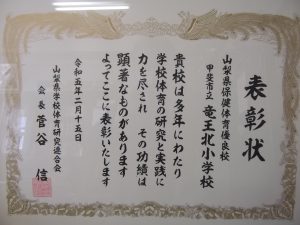 表彰状
山梨県保健体育優良校
甲斐市立竜王北小学校
貴校は多年にわたり
学校体育の研究と実践に
力を尽され その功績は
顕著なものがあります
よってここに表彰いたします
令和五年二月十五日
山梨県学校体育研究連合会
会長 菅谷 信